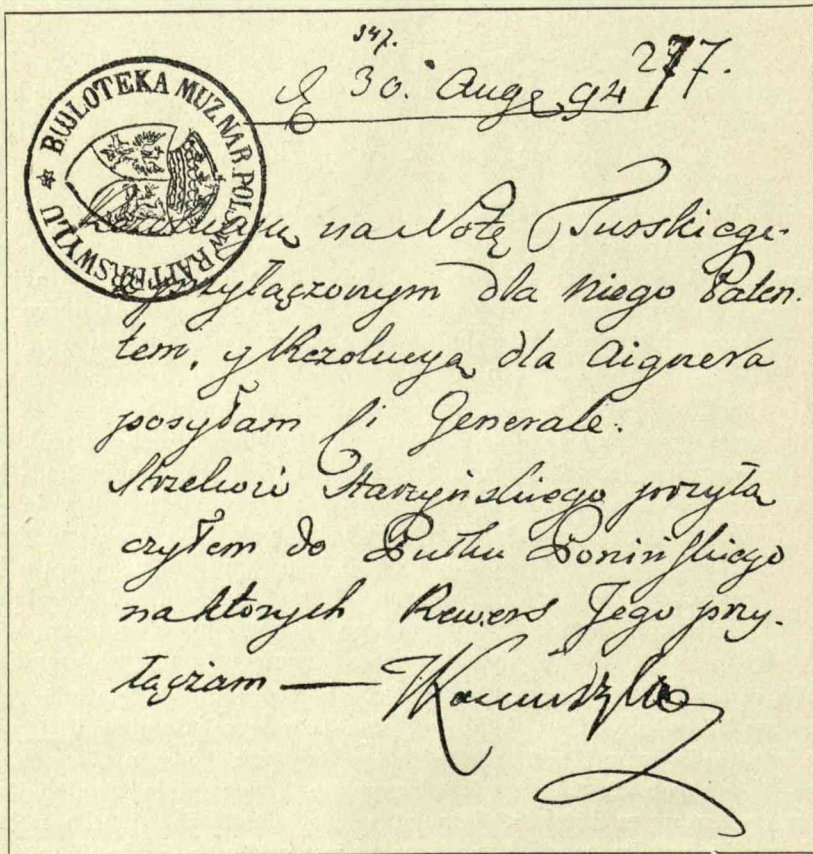 347.
30. Aug 94
277.
BIBLIOTEKA MUZ. NAR. POLS. W RAPPERSWYLU
na Notę Turskiego
przyłączonym dla niego Paten.
tem, y Rezolucyą dla Aignera
posyłam Ci Generale.
Strzelców Starzyńskiego przyłą
czyłem do Pułku Ponińskiego
na których Rewers Jego przy.
łączam — TKosciuszko